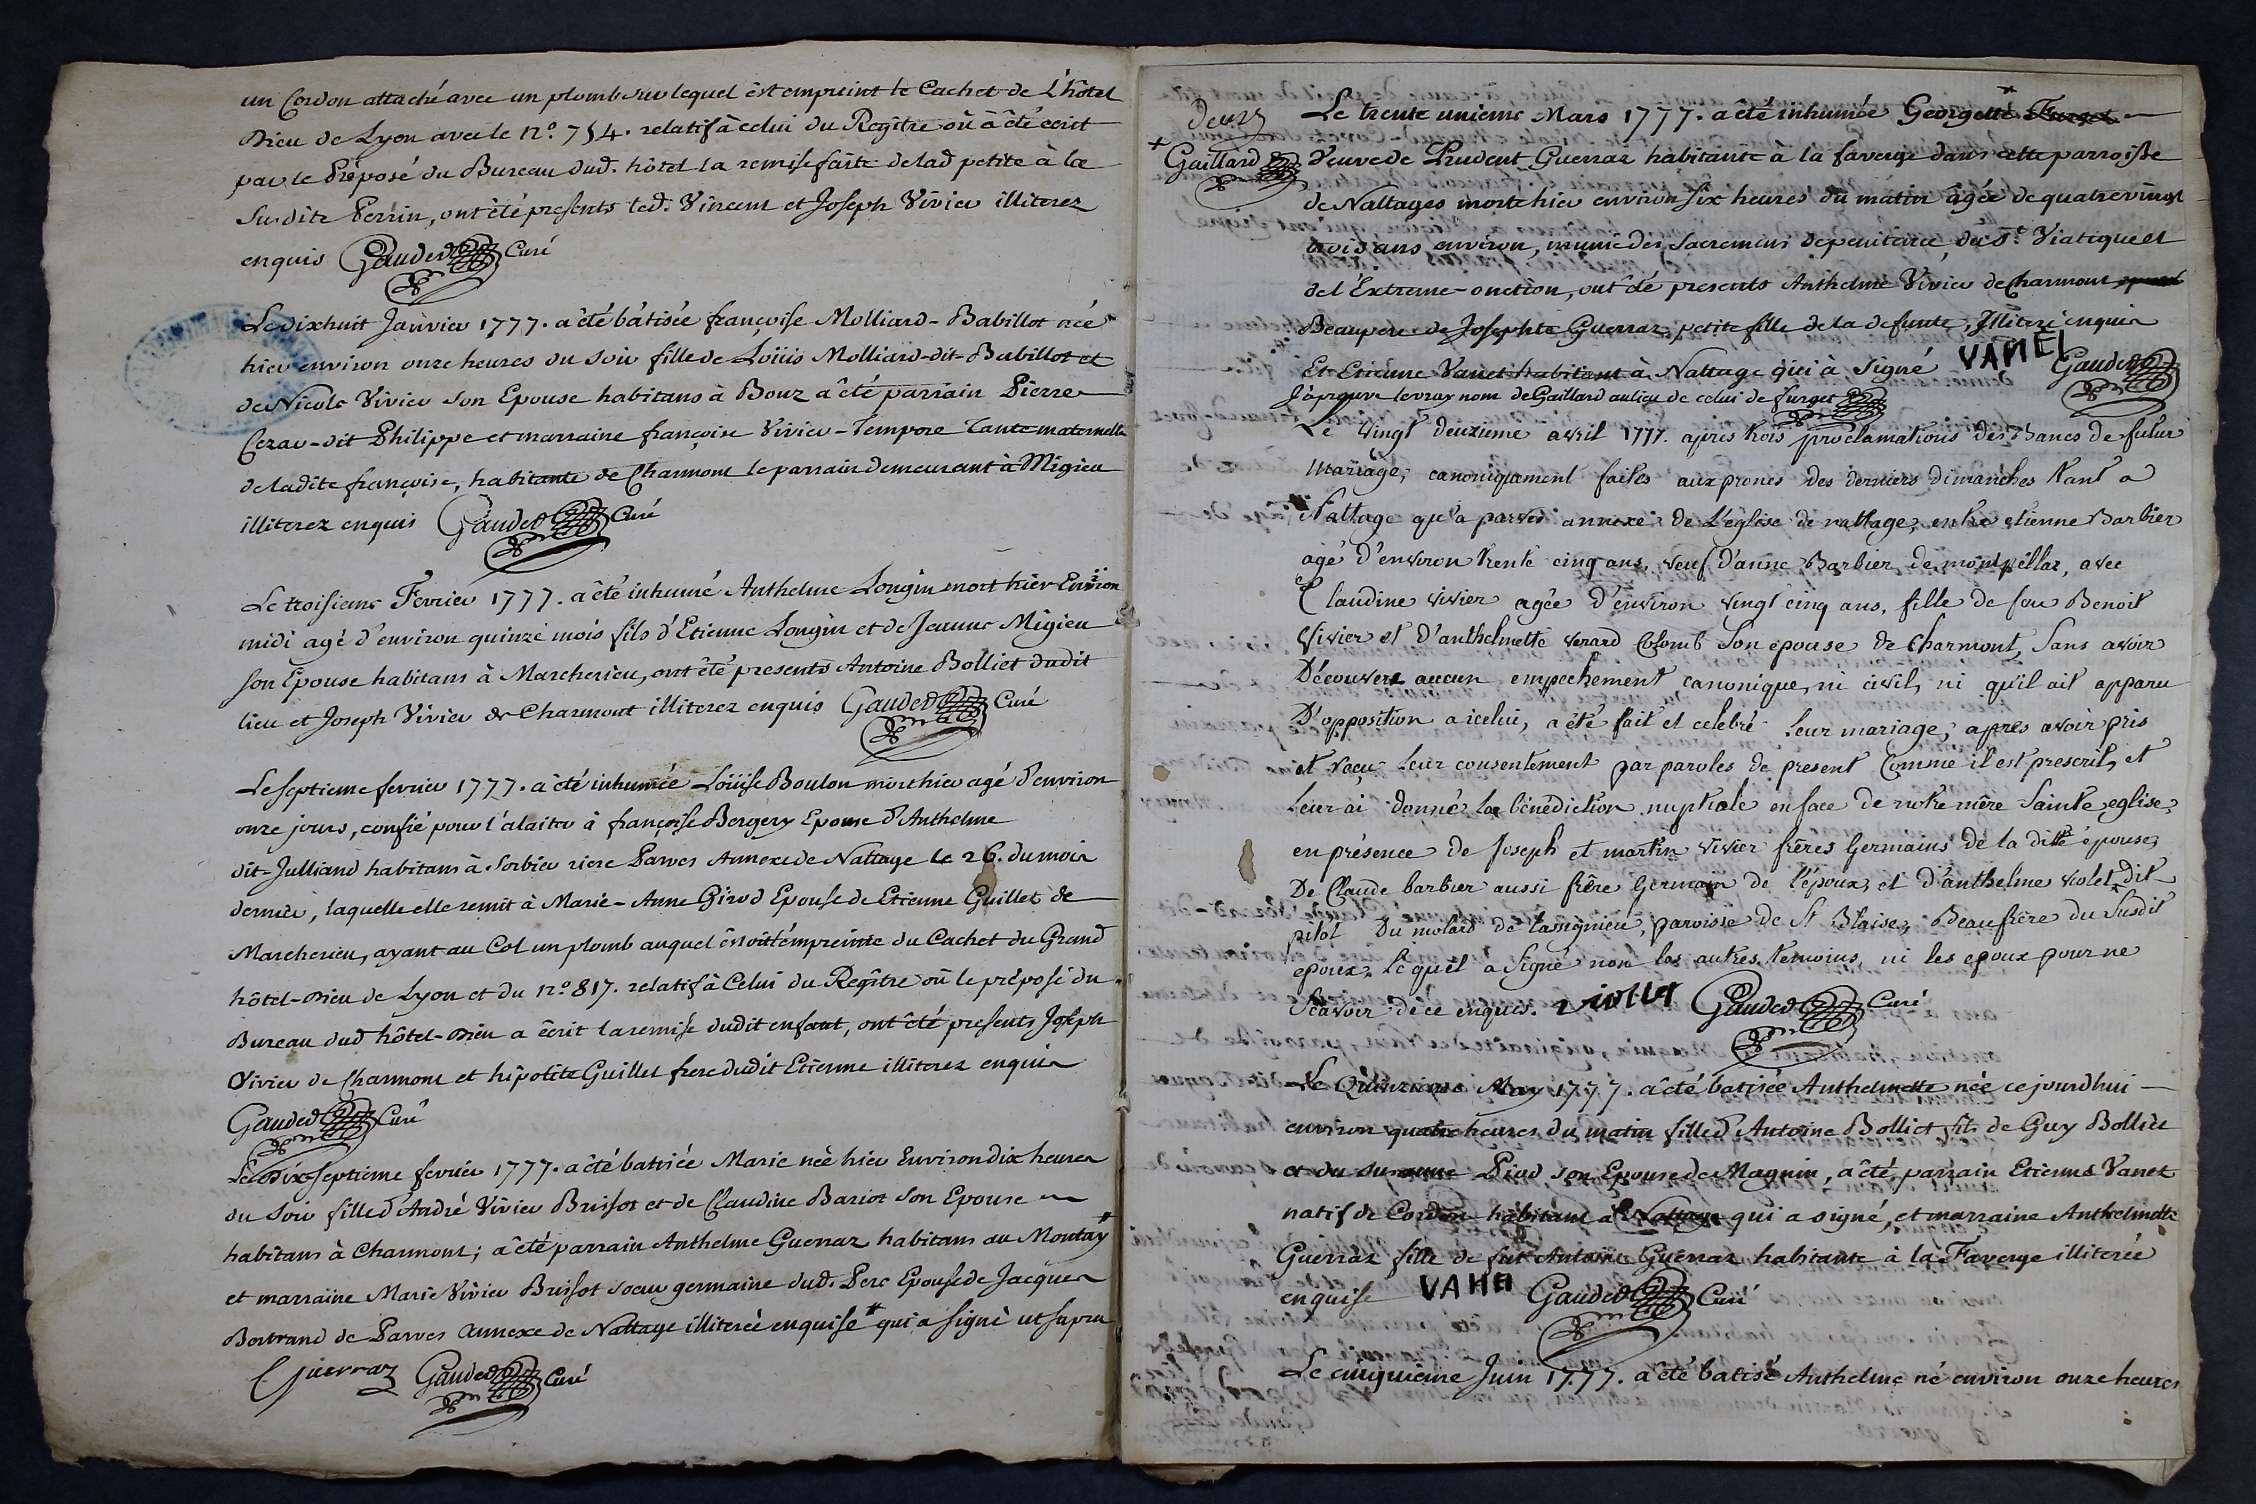 un Cordon attaché avec un plomb sur lequel est empreint le Cachet de L'hôtel
Dieu de Lyon avec le n.o 754. relatif à celui du Regître où à été ecrit
par le Préposé du Bureau dud. hôtel la remise faite de lad petite à la
Susdite Perrin, ont été presents led. Vincent et Joseph Vivier illiterez
enquis Gauded Curé
Le dixhuit Janvier 1777. a été bâtisée françoise Molliard-Babillot née
hier environ onze heures du soir fille de Loüis Molliard-dit-Babillot et
de Nicole Vivier son Epouse habitans à Bouz a été parrain Pierre
Cezar-dit Philippe et marraine françoise Vivier-Tempore Tante maternelle
de ladite françoise, habitante de Charmont le parrain demeurant à Migieu
illiterez enquis Gauded Curé
Le troisieme Fevrier 1777. a été inhumé Anthelme Longin mort hier Environ
midi agé d'environ quinze mois fils d'Etienne Longin et de Jeanne Migieu
son Epouse habitans à Marcherieu, ont été presents Antoine Bolliet dudit
lieu et Joseph Vivier de Charmont illiterez enquis Gauded Curé
Le septieme fevrier 1777. a été inhumée Loüise Boulon mort hier agé d'environ
onze jours, confié pour l'alaiter à françoise Bergery Epouse d'Anthelme
dit-Julliand habitans à Sorbier riere Parves Annexe de Nattage le 26. du mois
dernier, laquelle elle remit à Marie-Anne Girod Epouse de Etienne Guillet de
Marcherieu, ayant au Col un plomb auquel êtoit l'empreinte du Cachet du Grand
hôtel-Dieu de Lyon et du n.o 817. relatif à Celui du Regître où le préposé du
Bureau dud hôtel-Dieu a ècrit la remise dudit enfant, ont été presents Joseph
Vivier de Charmont et hipolite Guillet frere dudit Etienne illiterez enquis
Gauded Curé
Le Dixseptieme fevrier 1777. a été batisée Marie née hier Environ dix heures
du Soir fille d'André Vivier Brissot et de Claudine Bariot son Epouse
habitans à Charmont; a été parrain Anthelme Guerraz habitans au Montay #
et marraine Marie Vivier Brissot soeur germaine dud. Pere Epouse de Jacques
Bertrand de Parves Annexe de Nattage illiterée enquise # qui a signé ut supra
Guerraz Gauded Curé
deux
Le trente unieme Mars 1777. a été inhumée Georgette Furget
+ Gaillard
Veuve de Prudent Guerraz habitante à la faverge dans cette parroisse
de Nattages morte hier environ six heures du matin âgée de quatrevingt
trois ans environ, munie des Sacremens de penitence, du St Viatique et
de l'Extreme-onction, ont été presents Anthelme Vivier de Charmont
Beaupere de Josephte Guerraz, petite fille de la defunte, Illiteré enquis
Et Etienne Vanet habitant à Nattage qui à signé VANEL Gauded
J'aprouve le vray nom de Gaillard au lieu de celui de furget
Le vingt deuxieme avril 1777. apres trois proclamations des Bancs de futur
mariage, canoniquement failes aux prones des derniers dimanches tant a
Nattage qu'a parves annexe de L'église de nattage, entre etienne Barbier
agé d'environ trente cinq ans, veuf d'anne Barbier de montpellaz, avec
Claudine vivier agée d'environ vingt cinq ans, fille de feu Benoit
Vivier et d'anthelmette verard Colomb Son epouse de Charmont, Sans avoir
Découvert aucun empechement canonique, ni civil, ni qu'il ait apparu
D'opposition a icelui, a été fait et celebré leur mariage; apres avoir pris
et reçu leur consentement par paroles de present Comme il est prescrit, et
leur ai donné la bénédiction nuptiale en face de notre mère Sainte eglise,
en présence de Joseph et martin vivier frères Germains de la ditte épouse,
De Claude barbier aussi frère Germain de l'époux, et d'anthelme violet dit
pitot Du molard de lassignieu, paroisse de St Blaise, Beaufrère du Susdit
epoux. Lequel a Signé non les autres temoins, ni les epoux pour ne
Scavoir de ce enquis. violet Gauded Curé
Le Quinzieme May 1777. a été batisée Anthelmette née cejourdhui
environ quatre heures du matin fille d'Antoine Bolliet fils de Guy Bolliet
et du Piod son Epouse de Magnin, a été parrain Etienne Vanet
natif de Cordon habitant à Nattage qui a signé, et marraine Anthelmette
Guerraz fille de fut Antoine Guerraz habitante à la Faverge illiterée
enquise VANH Gauded Curé
Le cinquieme Juin 1777. a été batisé Anthelme né environ onze heures